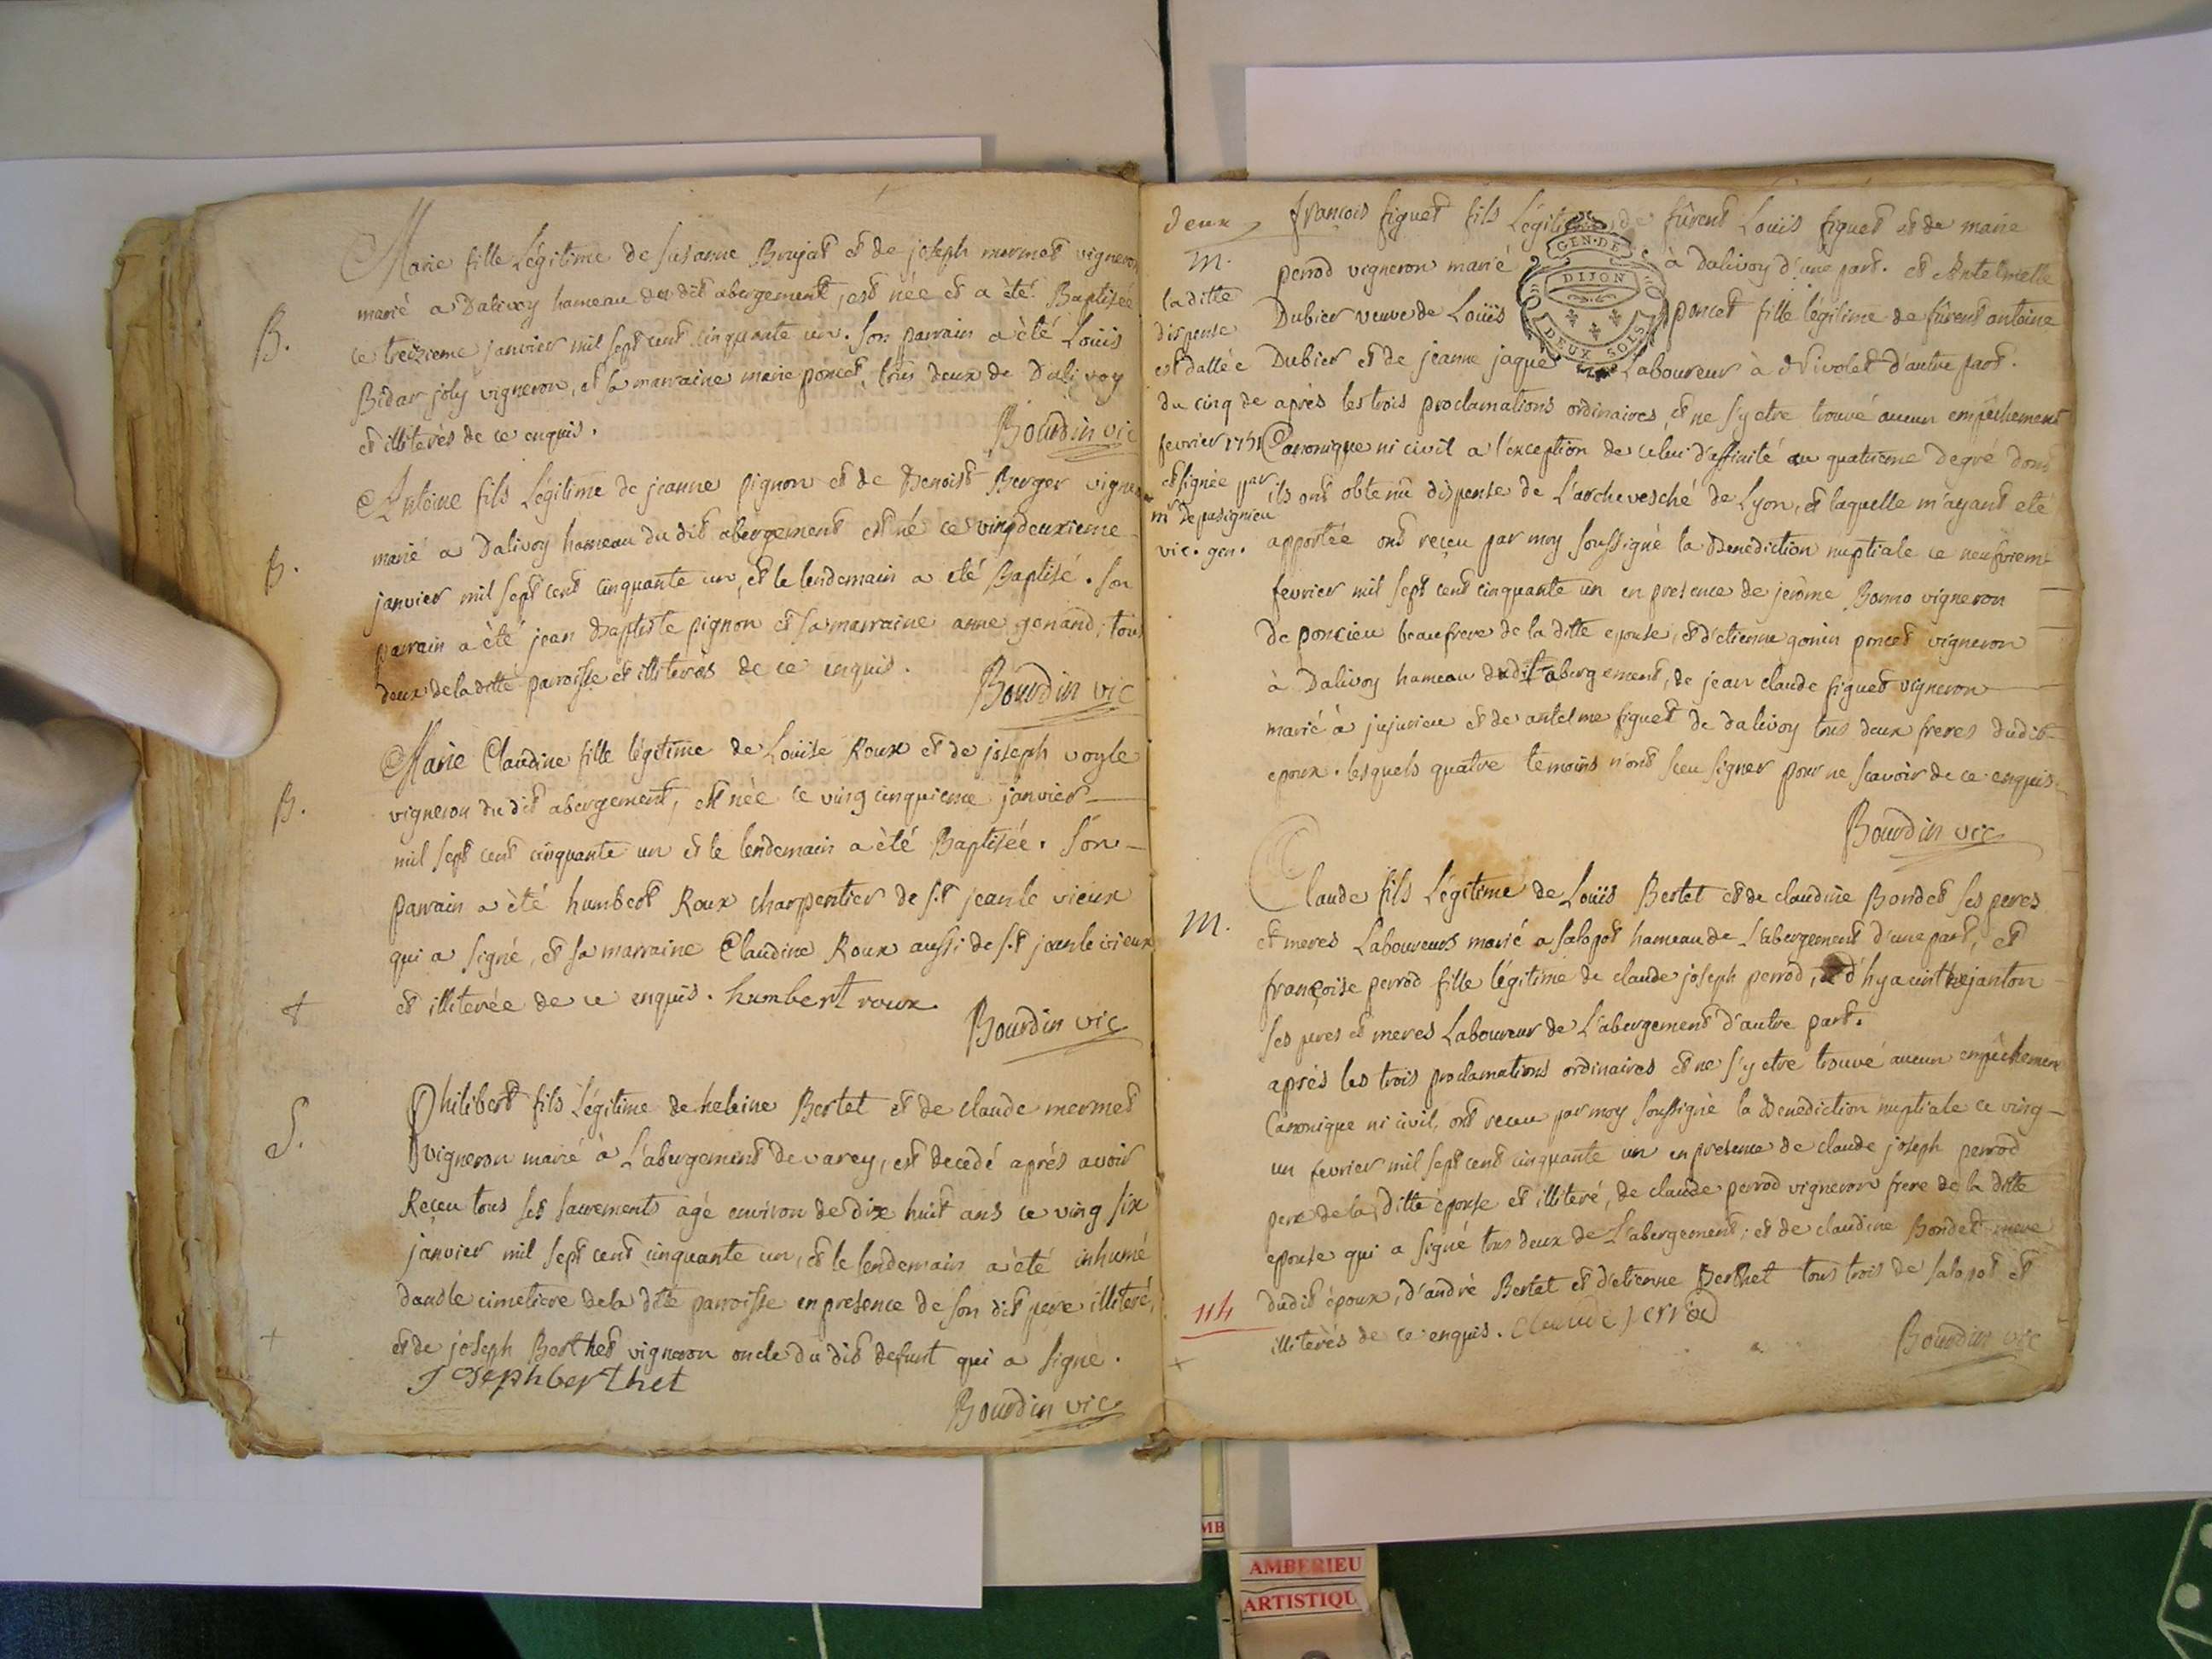 Marie fille Légitime de Susanne Brujat et de joseph mermet vigneron
marié a Dalivoy hameau du dit abergement, est née et a èté Baptisée
B.
ce treizieme janvier mil sept cent cinquante un. Son parrain a èté Louïs
Bidar joly vigneron, et sa marraine marie poncet, tous deux de Dalivoy
et illiterés de ce enquis.
Bourdin vic
Antoine fils Légitime de jeanne pignon et de Benoist Berger vigneron
B.
marié a Dalivoy hameau du dit abergement est né ce vingdeuxieme
janvier mil sept cent cinquante un, et le lendemain a eté Baptisé. Son
parrain a èté jean Baptiste pignon et sa marraine anne genand, tous
deux de la ditte parroisse et illiterés de ce enquis.
Bourdin vic
Marie Claudine fille légitime de Loüise Roux et de joseph vogle
B.
vigneron du dit abergement, est née ce ving cinquieme janvier
mil sept cent cinquante un et le lendemain a èté Baptisée. Son
parrain a èté humbert Roux charpentier de s.t jean le vieux
qui a signé, et sa marraine Claudine Roux aussi de s.t jean le vieux
et illiterée de ce enquis. humbert roux
Bourdin vic
S.
Philibert fils Légitime de heleine Bertet et de claude mermet
vigneron marié à L'abergement de varey, est decedé aprés avoir
Reçeu tous ses sacrements agé environ de dix huit ans ce ving six
janvier mil sept cent cinquante un, et le lendemain a èté inhumé
dans le cimetiere de la dite parroisse en presence de son dit pere illiteré,
et de joseph Berthet vigneron oncle du dit defunt qui a signé.
Josephberthet
Bourdin vic
deux
m.
la ditte
dispense
est dattée
du cinq de
fevrier 1751
et signée par
mr depusignieu
vic. gen.
françois figuet fils Légitime de fûrent Louis figuet et de marie
perrod vigneron marié à Dalivoy d'une part. et Antelmette
Dubier veuve de Louïs poncet fille légitime de fûrent antoine
Dubier et de jeanne jaque Laboureur à Nivolet d'autre part.
aprés les trois proclamations ordinaires, et ne s'y etre trouvé aucun empêchement
Canonique ni civil a l'exception de celui d'affinité au quatrieme degré dont
ils ont obtenû dispense de L'archevesché de Lyon, et laquelle m'ayant eté
apportée ont reçeu par moy soussigné la Benediction nuptiale ce neufvieme
fevrier mil sept cent cinquante un en presence de jerôme Bonno vigneron
de poncieu beaufrere de la ditte epouse, et d'etienne gonin poncet vigneron
à Dalivoy hameau dudit abergement, de jean claude figuet vigneron
marié à jujurieu et de antelme figuet de dalivoy tous deux freres dudit
epoux. lesquels quatre temoins n'ont sceu signer pour ne scavoir de ce enquis.
Bourdin vic
GEN. DE
DIJON
DEUX SOLS
m.
Claude fils Légitime de Louïs Bertet et de claudine Bondet ses peres
et meres Laboureurs marié a salapot hameau de L'abergement d'une part, et
françoise perrod fille légitime de claude joseph perrod, et d'hyacinthe janton
ses peres et meres Laboureur de L'abergement d'autre part.
aprés les trois proclamations ordinaires et ne s'y etre trouvé aucun empêchement
Canonique ni civil, ont receu par moy soussigné la Benediction nuptiale ce ving
un fevrier mil sept cent cinquante un en presence de claude joseph perrod
pere de la ditte épouse et illiteré, de claude perrod vigneron frere de la ditte
epouse qui a signé tous deux de L'abergement; et de claudine Bondet mere
dudit époux, d'andré Bertet et d'etienne Berthet tous trois de salapot et
illiterés de ce enquis. claude perrod
Bourdin vic
114
AMBERIEU
ARTISTIQU